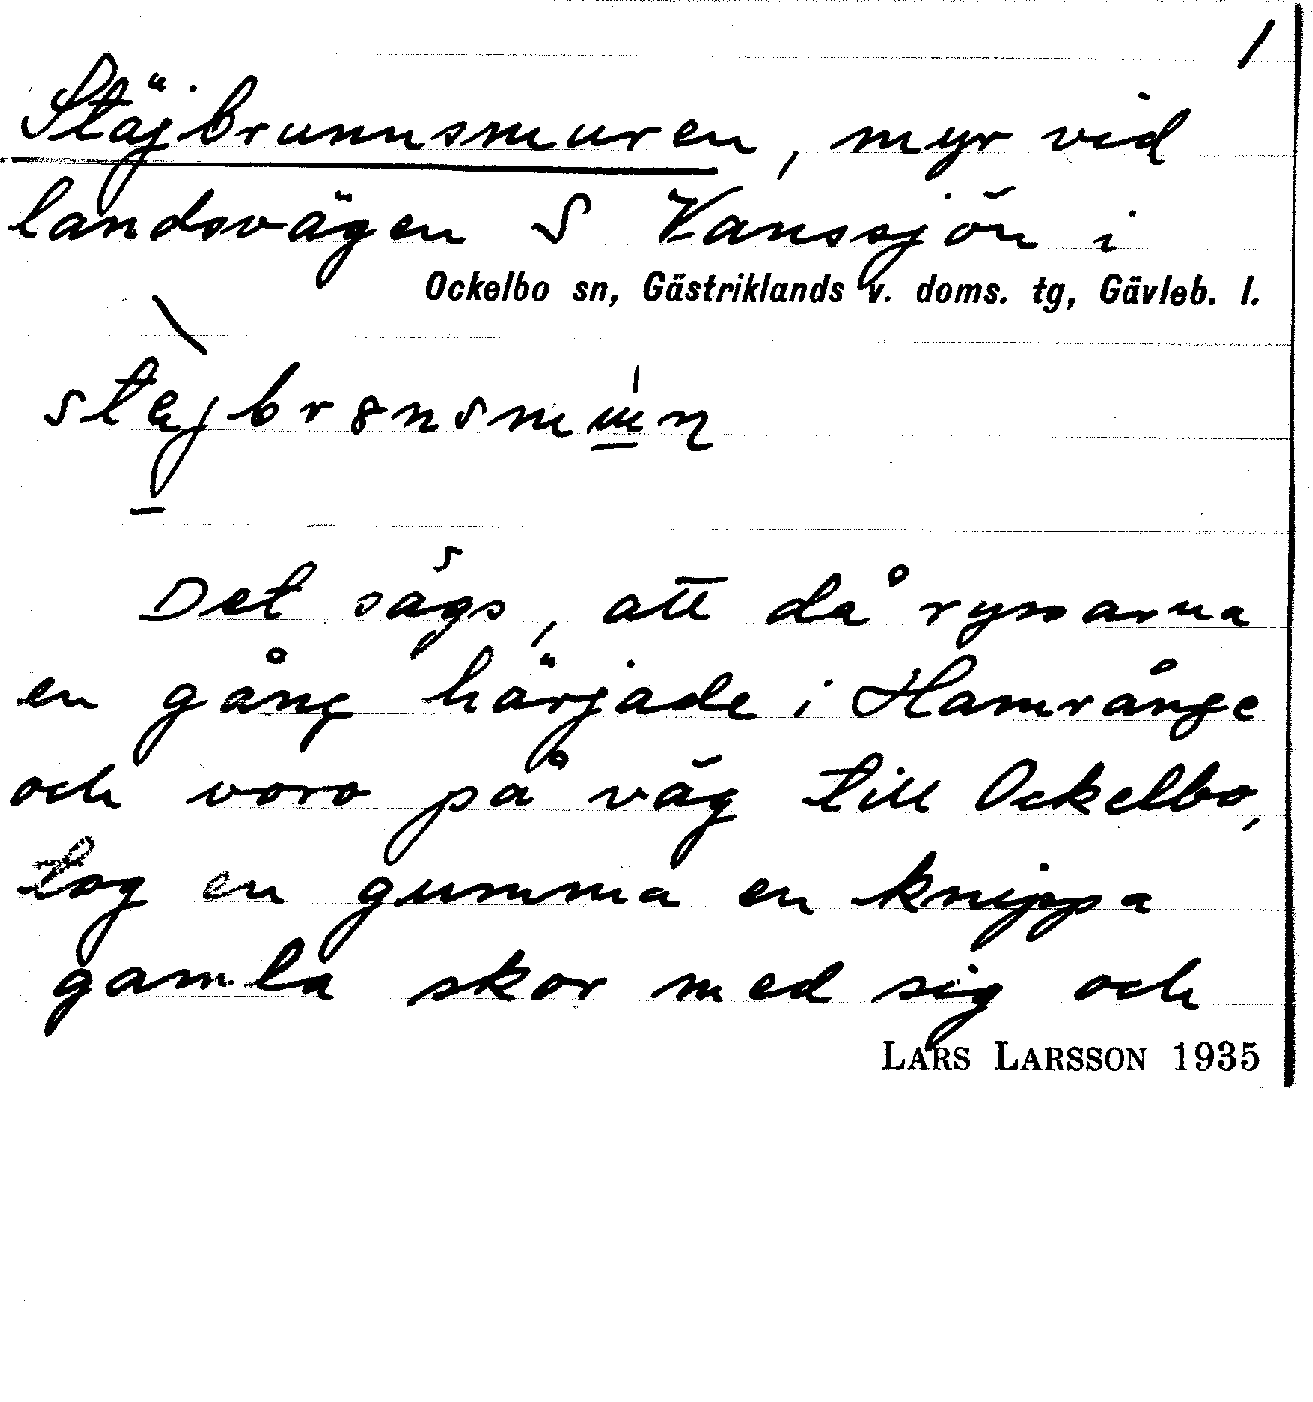 1
Stäjbrunnsmuren, myr vid
landsvägen S Vanssjön i
Ockelbo sn, Gästriklands v. doms. tg, Gävleb. l.
Det sägs, att då ryssarna
en gång härjade i Hamrånge
och voro på väg till Ockelbo,
tog en gumma en knippa
gamla skor med sig och
LARS LARSSON 1935